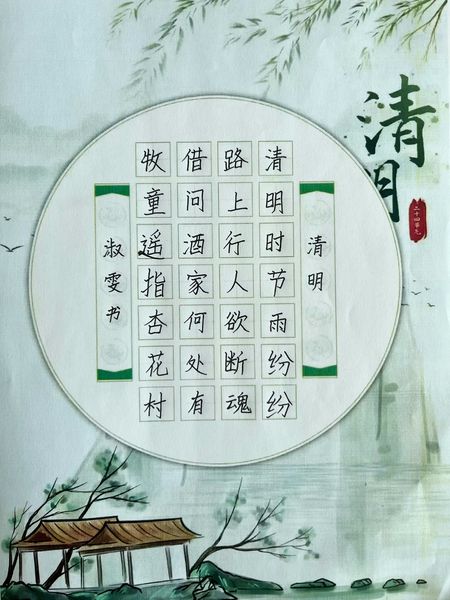 清明
二十四节气
清明
清明时节雨纷纷
路上行人欲断魂
借问酒家何处有
牧童遥指杏花村
淑雯书